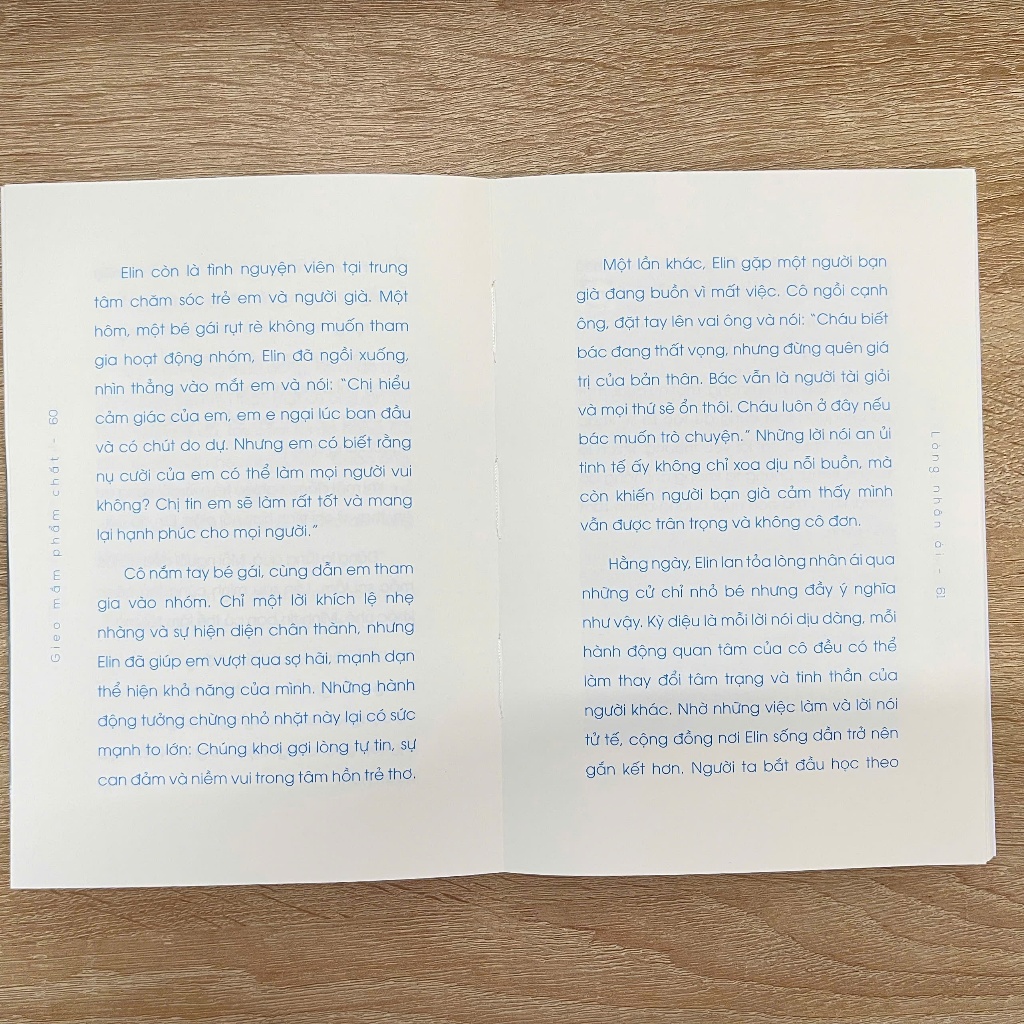 Elin còn là tình nguyện viên tại trung
tâm chăm sóc trẻ em và người già. Một
hôm, một bé gái rụt rè không muốn tham
gia hoạt động nhóm, Elin đã ngồi xuống,
nhìn thẳng vào mắt em và nói: “Chị hiểu
cảm giác của em, em e ngại lúc ban đầu
và có chút do dự. Nhưng em có biết rằng
nụ cười của em có thể làm mọi người vui
không? Chị tin em sẽ làm rất tốt và mang
lại hạnh phúc cho mọi người.”
Cô nắm tay bé gái, cùng dẫn em tham
gia vào nhóm. Chỉ một lời khích lệ nhẹ
nhàng và sự hiện diện chân thành, nhưng
Elin đã giúp em vượt qua sợ hãi, mạnh dạn
thể hiện khả năng của mình. Những hành
động tưởng chừng nhỏ nhặt này lại có sức
mạnh to lớn: Chúng khơi gợi lòng tự tin, sự
can đảm và niềm vui trong tâm hồn trẻ thơ.
Gieo mầm phẩm chất - 60
Một lần khác, Elin gặp một người bạn
già đang buồn vì mất việc. Cô ngồi cạnh
ông, đặt tay lên vai ông và nói: “Cháu biết
bác đang thất vọng, nhưng đừng quên giá
trị của bản thân. Bác vẫn là người tài giỏi
và mọi thứ sẽ ổn thôi. Cháu luôn ở đây nếu
bác muốn trò chuyện.” Những lời nói an ủi
tinh tế ấy không chỉ xoa dịu nỗi buồn, mà
còn khiến người bạn già cảm thấy mình
vẫn được trân trọng và không cô đơn.
Hằng ngày, Elin lan tỏa lòng nhân ái qua
những cử chỉ nhỏ bé nhưng đầy ý nghĩa
như vậy. Kỳ diệu là mỗi lời nói dịu dàng, mỗi
hành động quan tâm của cô đều có thể
làm thay đổi tâm trạng và tinh thần của
người khác. Nhờ những việc làm và lời nói
tử tế, cộng đồng nơi Elin sống dần trở nên
gắn kết hơn. Người ta bắt đầu học theo
Lòng nhân ái - 61